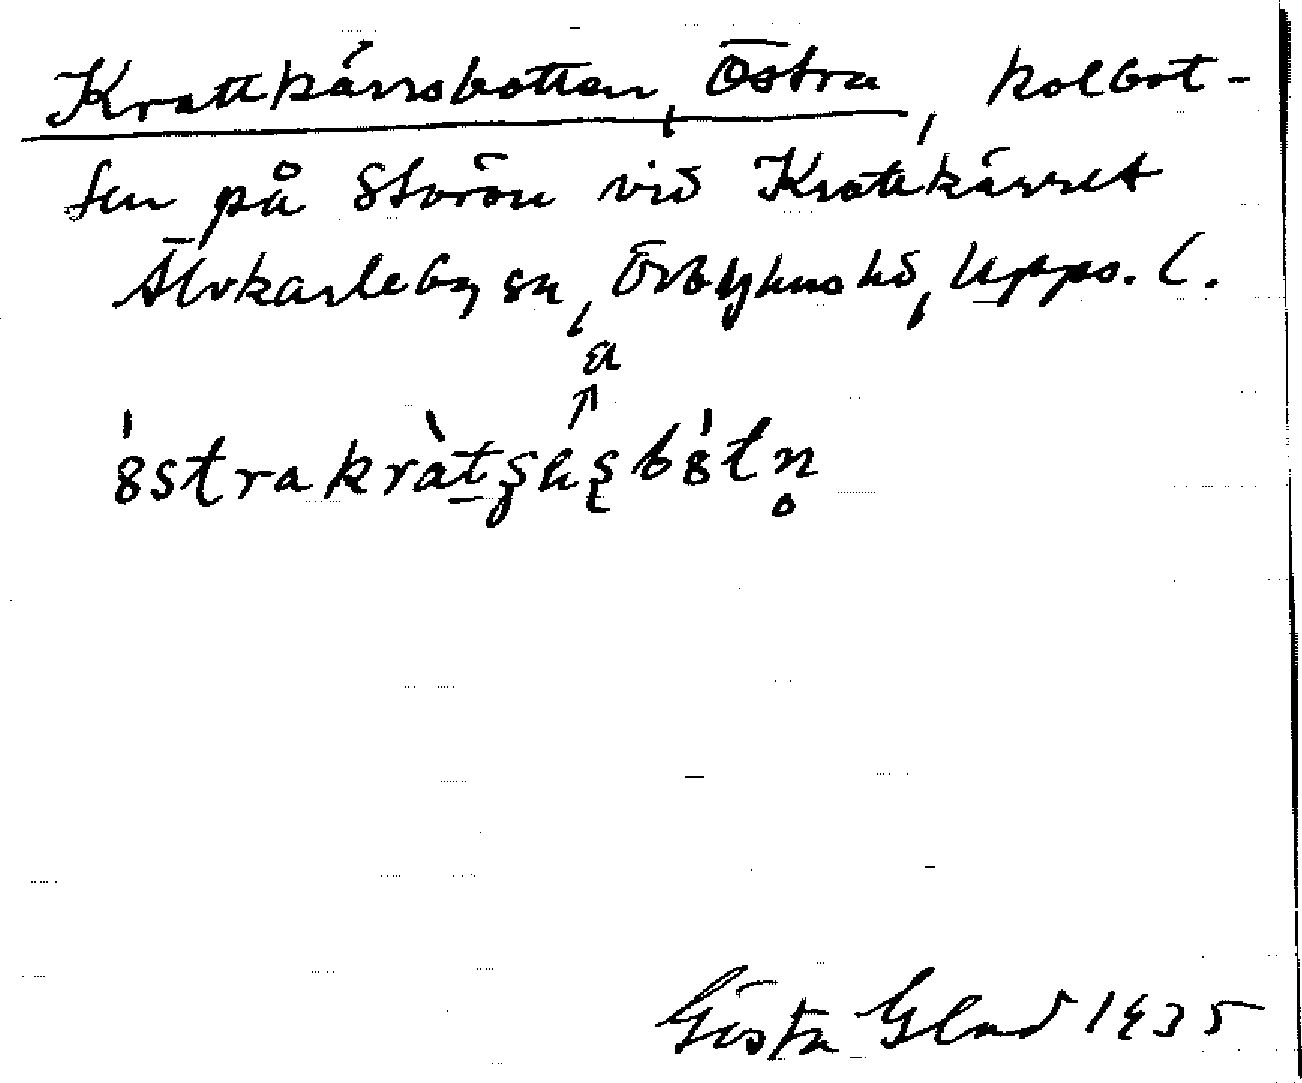 Krattkärrsbotten, Östra, kolbot-
ten på Storön vid Krattkärret
Älvkarleby sn, Örbyhus hd, Upps. l.
a
Gösta Glad 1935